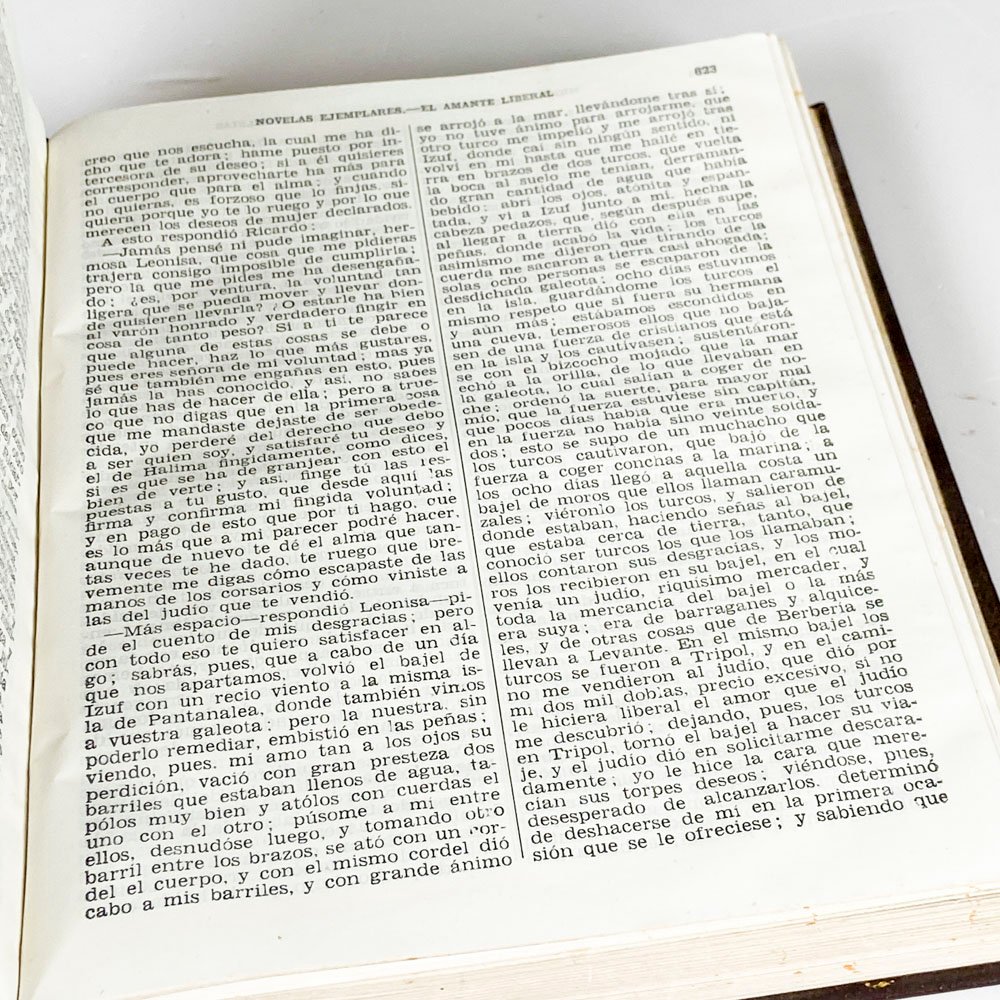 623
NOVELAS EJEMPLARES.—EL AMANTE LIBERAL
creo que nos escucha, la cual me ha di-
cho que te adora; hame puesto por in-
tercesora de su deseo; si a él quisieres
corresponder, aprovecharte ha más para
el cuerpo que para el alma; y cuando
no quieras, es forzoso que lo finjas, si-
quiera porque yo te lo ruego y por lo que
merecen los deseos de mujer declarados.
A esto respondió Ricardo:
—Jamás pensé ni pude imaginar, her-
mosa Leonisa, que cosa que me pidieras
trajera consigo imposible de cumplirla;
pero la que me pides me ha desengaña-
do; ¿es, por ventura, la voluntad tan
ligera que se pueda mover y llevar don-
de quisieren llevarla? ¿O estarle ha bien
al varón honrado y verdadero fingir en
cosa de tanto peso? Si a ti te parece
que alguna de estas cosas se debe o
puede hacer, haz lo que más gustares,
pues eres señora de mi voluntad; mas ya
sé que también me engañas en esto, pues
jamás la has conocido, y así, no sabes
lo que has de hacer de ella; pero a true-
co que no digas que en la primera cosa
que me mandaste dejaste de ser obede-
cida, yo perderé del derecho que debo
a ser quien soy, y satisfaré tu deseo y
el de Halima fingidamente, como dices,
si es que se ha de granjear con esto el
bien de verte; y así, finge tú las res-
puestas a tu gusto, que desde aquí las
firma y confirma mi fingida voluntad;
y en pago de esto que por ti hago, que
es lo más que a mi parecer podré hacer,
aunque de nuevo te dé el alma que tan-
tas veces te he dado, te ruego que bre-
vemente me digas cómo escapaste de las
manos de los corsarios y cómo viniste a
las del judío que te vendió.
—Más espacio—respondió Leonisa—pi-
de el cuento de mis desgracias; pero
con todo eso te quiero satisfacer en al-
go; sabrás, pues, que a cabo de un día
que nos apartamos, volvió el bajel de
Izuf con un recio viento a la misma is-
la de Pantanalea, donde también vimos
a vuestra galeota; pero la nuestra, sin
poderlo remediar, embistió en las peñas;
viendo, pues, mi amo tan a los ojos su
perdición, vació con gran presteza dos
barriles que estaban llenos de agua, ta-
pólos muy bien y atólos con cuerdas el
uno con el otro; púsome a mí entre
ellos, desnudóse luego, y tomando otro
barril entre los brazos, se ató con un cor-
del el cuerpo, y con el mismo cordel dió
cabo a mis barriles, y con grande ánimo
se arrojó a la mar, llevándome tras sí;
yo no tuve ánimo para arrojarme, que
otro turco me impelió y me arrojó tras
Izuf, donde caí sin ningún sentido, ni
volví en mí hasta que me hallé en tie-
rra en brazos de dos turcos, que vuelta
la boca al suelo me tenían, derraman-
do gran cantidad de agua que había
bebido; abrí los ojos, atónita y espan-
tada, y vi a Izuf junto a mí, hecha la
cabeza pedazos, que, según después supe,
al llegar a tierra dió con ella en las
peñas, donde acabó la vida; los turcos
asimismo me dijeron que tirando de la
cuerda me sacaron a tierra casi ahogada;
solas ocho personas se escaparon de la
desdichada galeota; ocho días estuvimos
en la isla, guardándome los turcos el
mismo respeto que si fuera su hermana
y aún más; estábamos escondidos en
una cueva, temerosos ellos que no baja-
sen de una fuerza de cristianos que está
en la isla y los cautivasen; sustentáron-
se con el bizcocho mojado que la mar
echó a la orilla, de lo que llevaban en
la galeota, lo cual salían a coger de no-
che; ordenó la suerte, para mayor mal
mío, que la fuerza estuviese sin capitán,
que pocos días había que era muerto, y
en la fuerza no había sino veinte solda-
dos; esto se supo de un muchacho que
los turcos cautivaron, que bajó de la
fuerza a coger conchas a la marina; a
los ocho días llegó a aquella costa un
bajel de moros que ellos llaman caramu-
zales; viéronlo los turcos, y salieron de
donde estaban, haciendo señas al bajel,
que estaba cerca de tierra, tanto, que
conoció ser turcos los que los llamaban;
ellos contaron sus desgracias, y los mo-
ros los recibieron en su bajel, en el cual
venía un judío, riquísimo mercader, y
toda la mercancía del bajel o la más
era suya; era de barraganes y alquice-
les, y de otras cosas que de Berbería se
llevan a Levante. En el mismo bajel los
turcos se fueron a Tripol, y en el cami-
no me vendieron al judío, que dió por
mí dos mil doblas, precio excesivo, si no
le hiciera liberal el amor que el judío
me descubrió; dejando, pues, los turcos
en Tripol, tornó el bajel a hacer su via-
je, y el judío dió en solicitarme descara-
damente; yo le hice la cara que mere-
cían sus torpes deseos; viéndose, pues,
desesperado de alcanzarlos, determinó
de deshacerse de mí en la primera oca-
sión que se le ofreciese; y sabiendo que